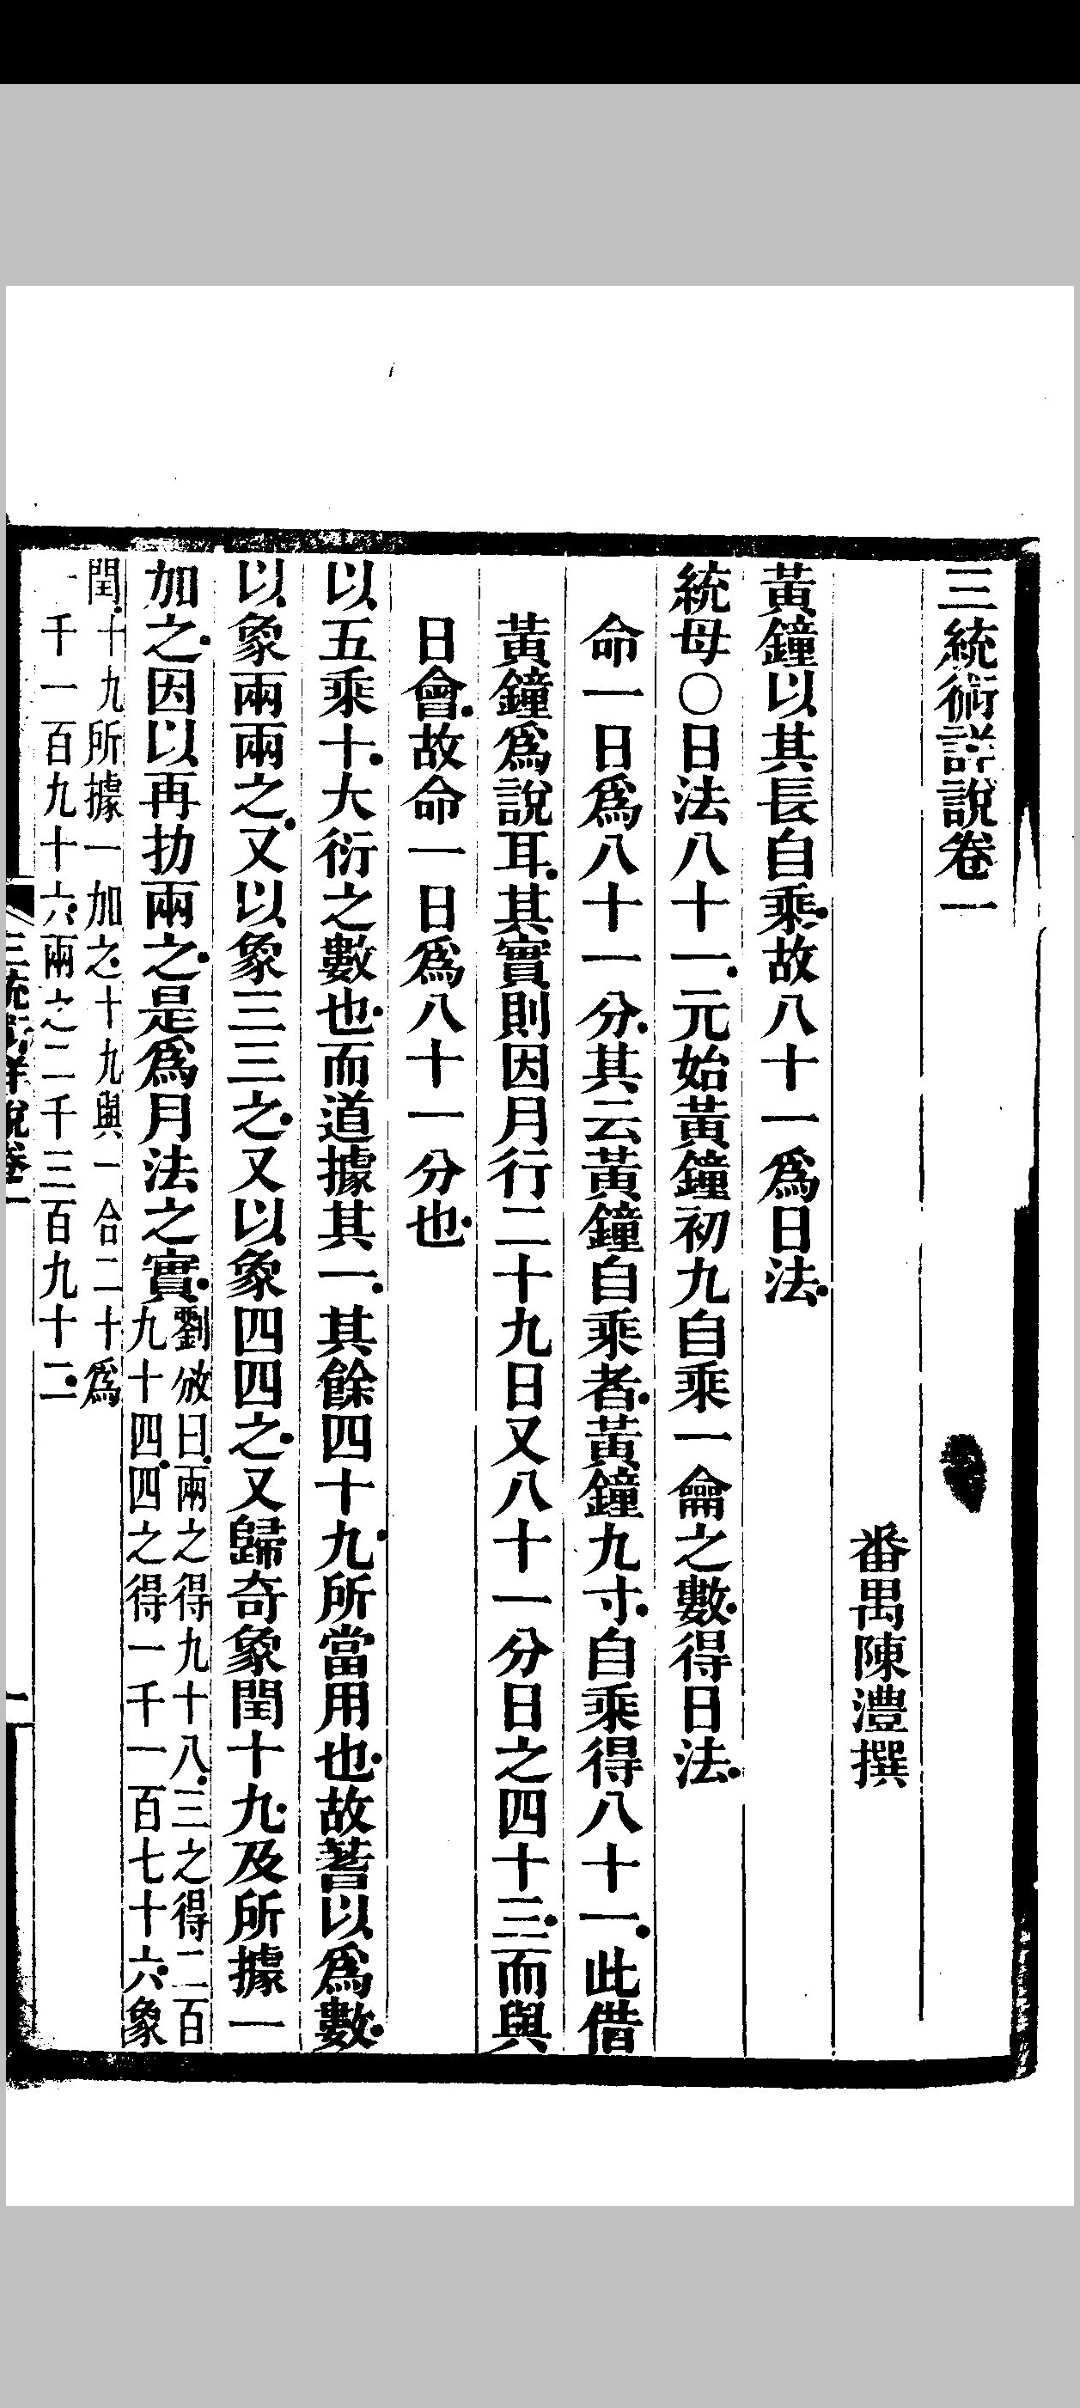 三統術詳說卷一
番禺陳澧撰
黃鐘以其長自乘故八十一爲日法
統母○日法八十一元始黃鐘初九自乘一龠之數得日法
命一日爲八十一分其云黃鐘自乘者黃鐘九寸自乘得八十一此借
黃鐘爲說耳其實則因月行二十九日又八十一分日之四十三而與
日會故命一日爲八十一分也
以五乘十大衍之數也而道據其一其餘四十九所當用也故蓍以爲數
以象兩兩之又以象三三之又以象四四之又歸奇象閏十九及所據一
加之因以再扐兩之是爲月法之實
劉攽曰兩之得九十八三之得二百
九十四四之得一千一百七十六象
閏十九所據一加之十九與一合二十爲
一千一百九十六兩之二千三百九十二
三統術詳說卷一
一